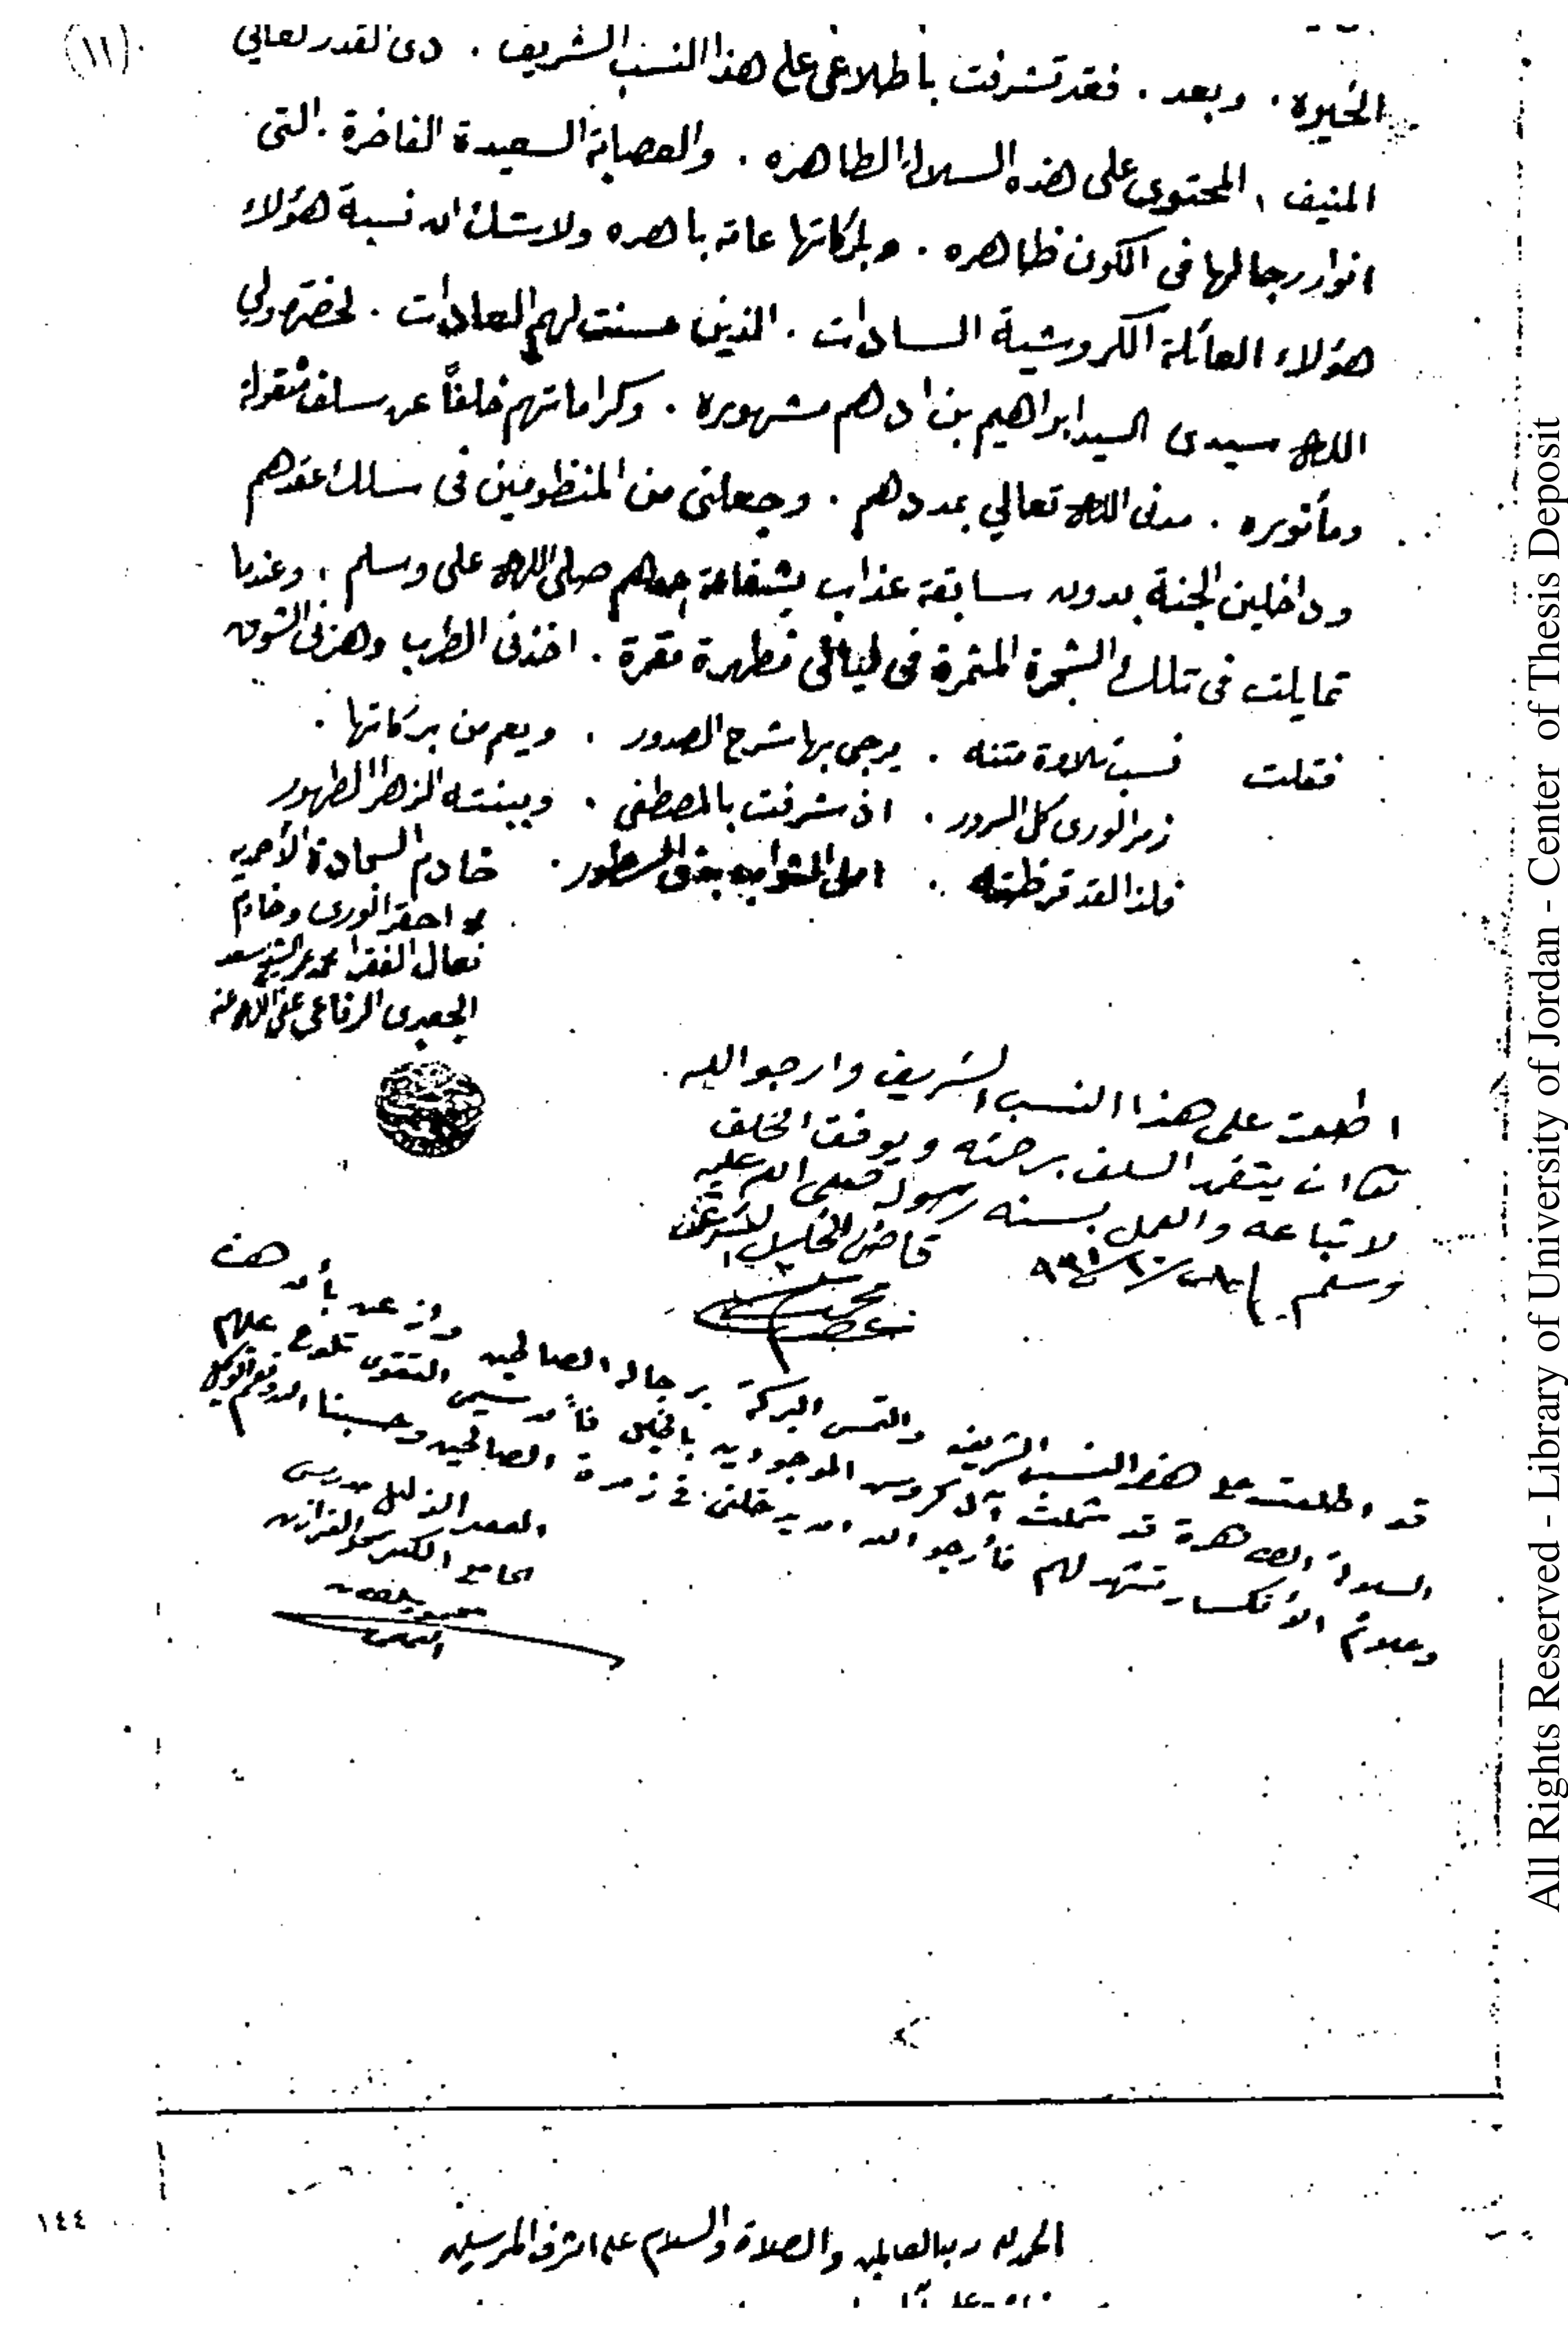 (١١)
الخيره . وبعد . فقد تشرفت باطلاعي على هذا النسب الشريف . ذى القدر العالي
المنيف ، المحتوى على هذه السلالة الطاهره . والعصابة السعيدة الفاخرة . التى
انوار رجالها فى الكون ظاهره . وبركاتها عامه باهره ولا شك ان نسبة هؤلاء
هؤلاء العائلة الكروشية السادات . الذين حسنت لهم العادات . لحضرة ولي
الله سيدى السيد ابراهيم بن ادهم مشهوره . وكراماتهم خلفاً عن سلف منقولة
ومأثوره . مدنى الله تعالي بمددهم . وجعلنى من المنظومين فى سلك عقدهم
وداخلين الجنة بدون سابقة عذاب بشفاعة جدهم صلى الله على وسلم ، وعندما
تمايلت فى تلك الشجرة المثمرة فى ليالى مقمرة . اخذنى الطرب وهزنى الشوق
فقلت نسب تلاوة متنه . يرجى بها شرح الصدور . ويعم من بركاتها .
زمر الورى كل السرور . اذ شرفت بالمصطفى . وببنته الزهرا الطهور
فلذا لقد قرظته . امل الثواب السطور . خادم السجادة الأحمديه
احقر الورى وخادم
نعال الفقرا محمد عمر الشيخ سعد
الجعبرى الرفاعي عفى الله عنه
اطلعت على هذا النسب الشريف وارجو الله
ان يتغمد السلف برحمته ويوفق الخلف
لاتباعه والعمل بسنه رسوله صلى الله عليه
وسلم قاضي الخليل الشرعي
محمد
قد اطلعت على هذا النسب الشريف والتمس البركة برجاله الصالحين واذعن بأن هذه
السلالة الطاهرة قد مثلت آل كروش الموجودين بالخليل فأن سيمى التقوى تلوح عليهم
وعلائم الأنكسار تشهد لهم فأرجو الله ان يدخلنى فى زمرة الصالحين وحسبنا الله ونعم الوكيل
العبد الذليل مدرس
الجامع الكبير
١٤٤
الحمد لله رب العالمين والصلاة والسلام على اشرف المرسلين
All Rights Reserved - Library of University of Jordan - Center of Thesis Deposit